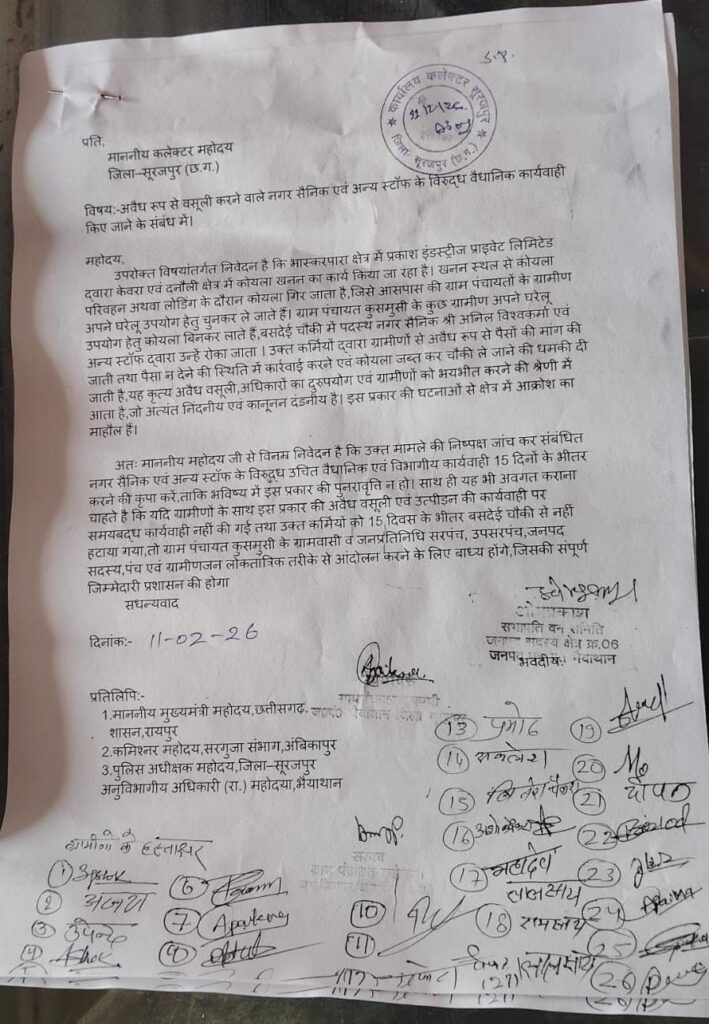 S.P.
कार्यालय कलेक्टर सूरजपुर
जिला- सूरजपुर (छ.ग.)
प्रति,
माननीय कलेक्टर महोदय
जिला–सूरजपुर (छ.ग.)
विषय:-अवैध रूप से वसूली करने वाले नगर सैनिक एवं अन्य स्टॉफ के विरुद्ध वैधानिक कार्यवाही
किए जाने के संबंध में।
महोदय,
उपरोक्त विषयांतर्गत निवेदन है कि भास्करपारा क्षेत्र में प्रकाश इंडस्ट्रीज प्राइवेट लिमिटेड
द्वारा केवरा एवं दनौली क्षेत्र में कोयला खनन का कार्य किया जा रहा है। खनन स्थल से कोयला
परिवहन अथवा लोडिंग के दौरान कोयला गिर जाता है,जिसे आसपास की ग्राम पंचायतों के ग्रामीण
अपने घरेलू उपयोग हेतु चुनकर ले जाते हैं। ग्राम पंचायत कुसमुसी के कुछ ग्रामीण अपने घरेलू
उपयोग हेतु कोयला बिनकर लाते हैं,बसदेई चौकी में पदस्थ नगर सैनिक श्री अनिल विश्वकर्मा एवं
अन्य स्टॉफ द्वारा उन्हें रोका जाता । उक्त कर्मियों द्वारा ग्रामीणों से अवैध रूप से पैसों की मांग की
जाती तथा पैसा न देने की स्थिति में कार्रवाई करने एवं कोयला जब्त कर चौकी ले जाने की धमकी दी
जाती है,यह कृत्य अवैध वसूली,अधिकारों का दुरुपयोग एवं ग्रामीणों को भयभीत करने की श्रेणी में
आता है,जो अत्यंत निंदनीय एवं कानूनन दंडनीय है। इस प्रकार की घटनाओं से क्षेत्र में आक्रोश का
माहौल हैं।
अतः माननीय महोदय जी से विनम्र निवेदन है कि उक्त मामले की निष्पक्ष जांच कर संबंधित
नगर सैनिक एवं अन्य स्टॉफ के विरुद्ध उचित वैधानिक एवं विभागीय कार्यवाही 15 दिनों के भीतर
करने की कृपा करें,ताकि भविष्य में इस प्रकार की पुनरावृत्ति न हो। साथ ही यह भी अवगत कराना
चाहते है कि यदि ग्रामीणों के साथ इस प्रकार की अवैध वसूली एवं उत्पीड़न की कार्यवाही पर
समयबद्ध कार्यवाही नहीं की गई तथा उक्त कर्मियों को 15 दिवस के भीतर बसदेई चौकी से नहीं
हटाया गया,तो ग्राम पंचायत कुसमुसी के ग्रामवासी व जनप्रतिनिधि सरपंच, उपसरपंच,जनपद
सदस्य,पंच एवं ग्रामीणजन लोकतांत्रिक तरीके से आंदोलन करने के लिए बाध्य होंगे,जिसकी संपूर्ण
जिम्मेदारी प्रशासन की होगा
सधन्यवाद
सभापति वन समिति
जनपद सदस्य क्षेत्र क्र.06
भवदीय
दिनांक:- 11-02-26
प्रतिलिपि:-
1.माननीय मुख्यमंत्री महोदय,छत्तीसगढ़
शासन,रायपुर
2.कमिश्नर महोदय,सरगुजा संभाग,अंबिकापुर
3.पुलिस अधीक्षक महोदय,जिला–सूरजपुर
अनुविभागीय अधिकारी (रा.) महोदया,भैयाथान
ग्रामीणों के हस्ताक्षर
1
2
3 उपेन्द्र
4 Ashok
6
7
9
सरपंच
10
11
13 प्रमोद
14
15
16
17 महादेव
लालसाय
18 रामसाय
19
20
21 दीपक
22
23
24
25
26
(27) लालसाय